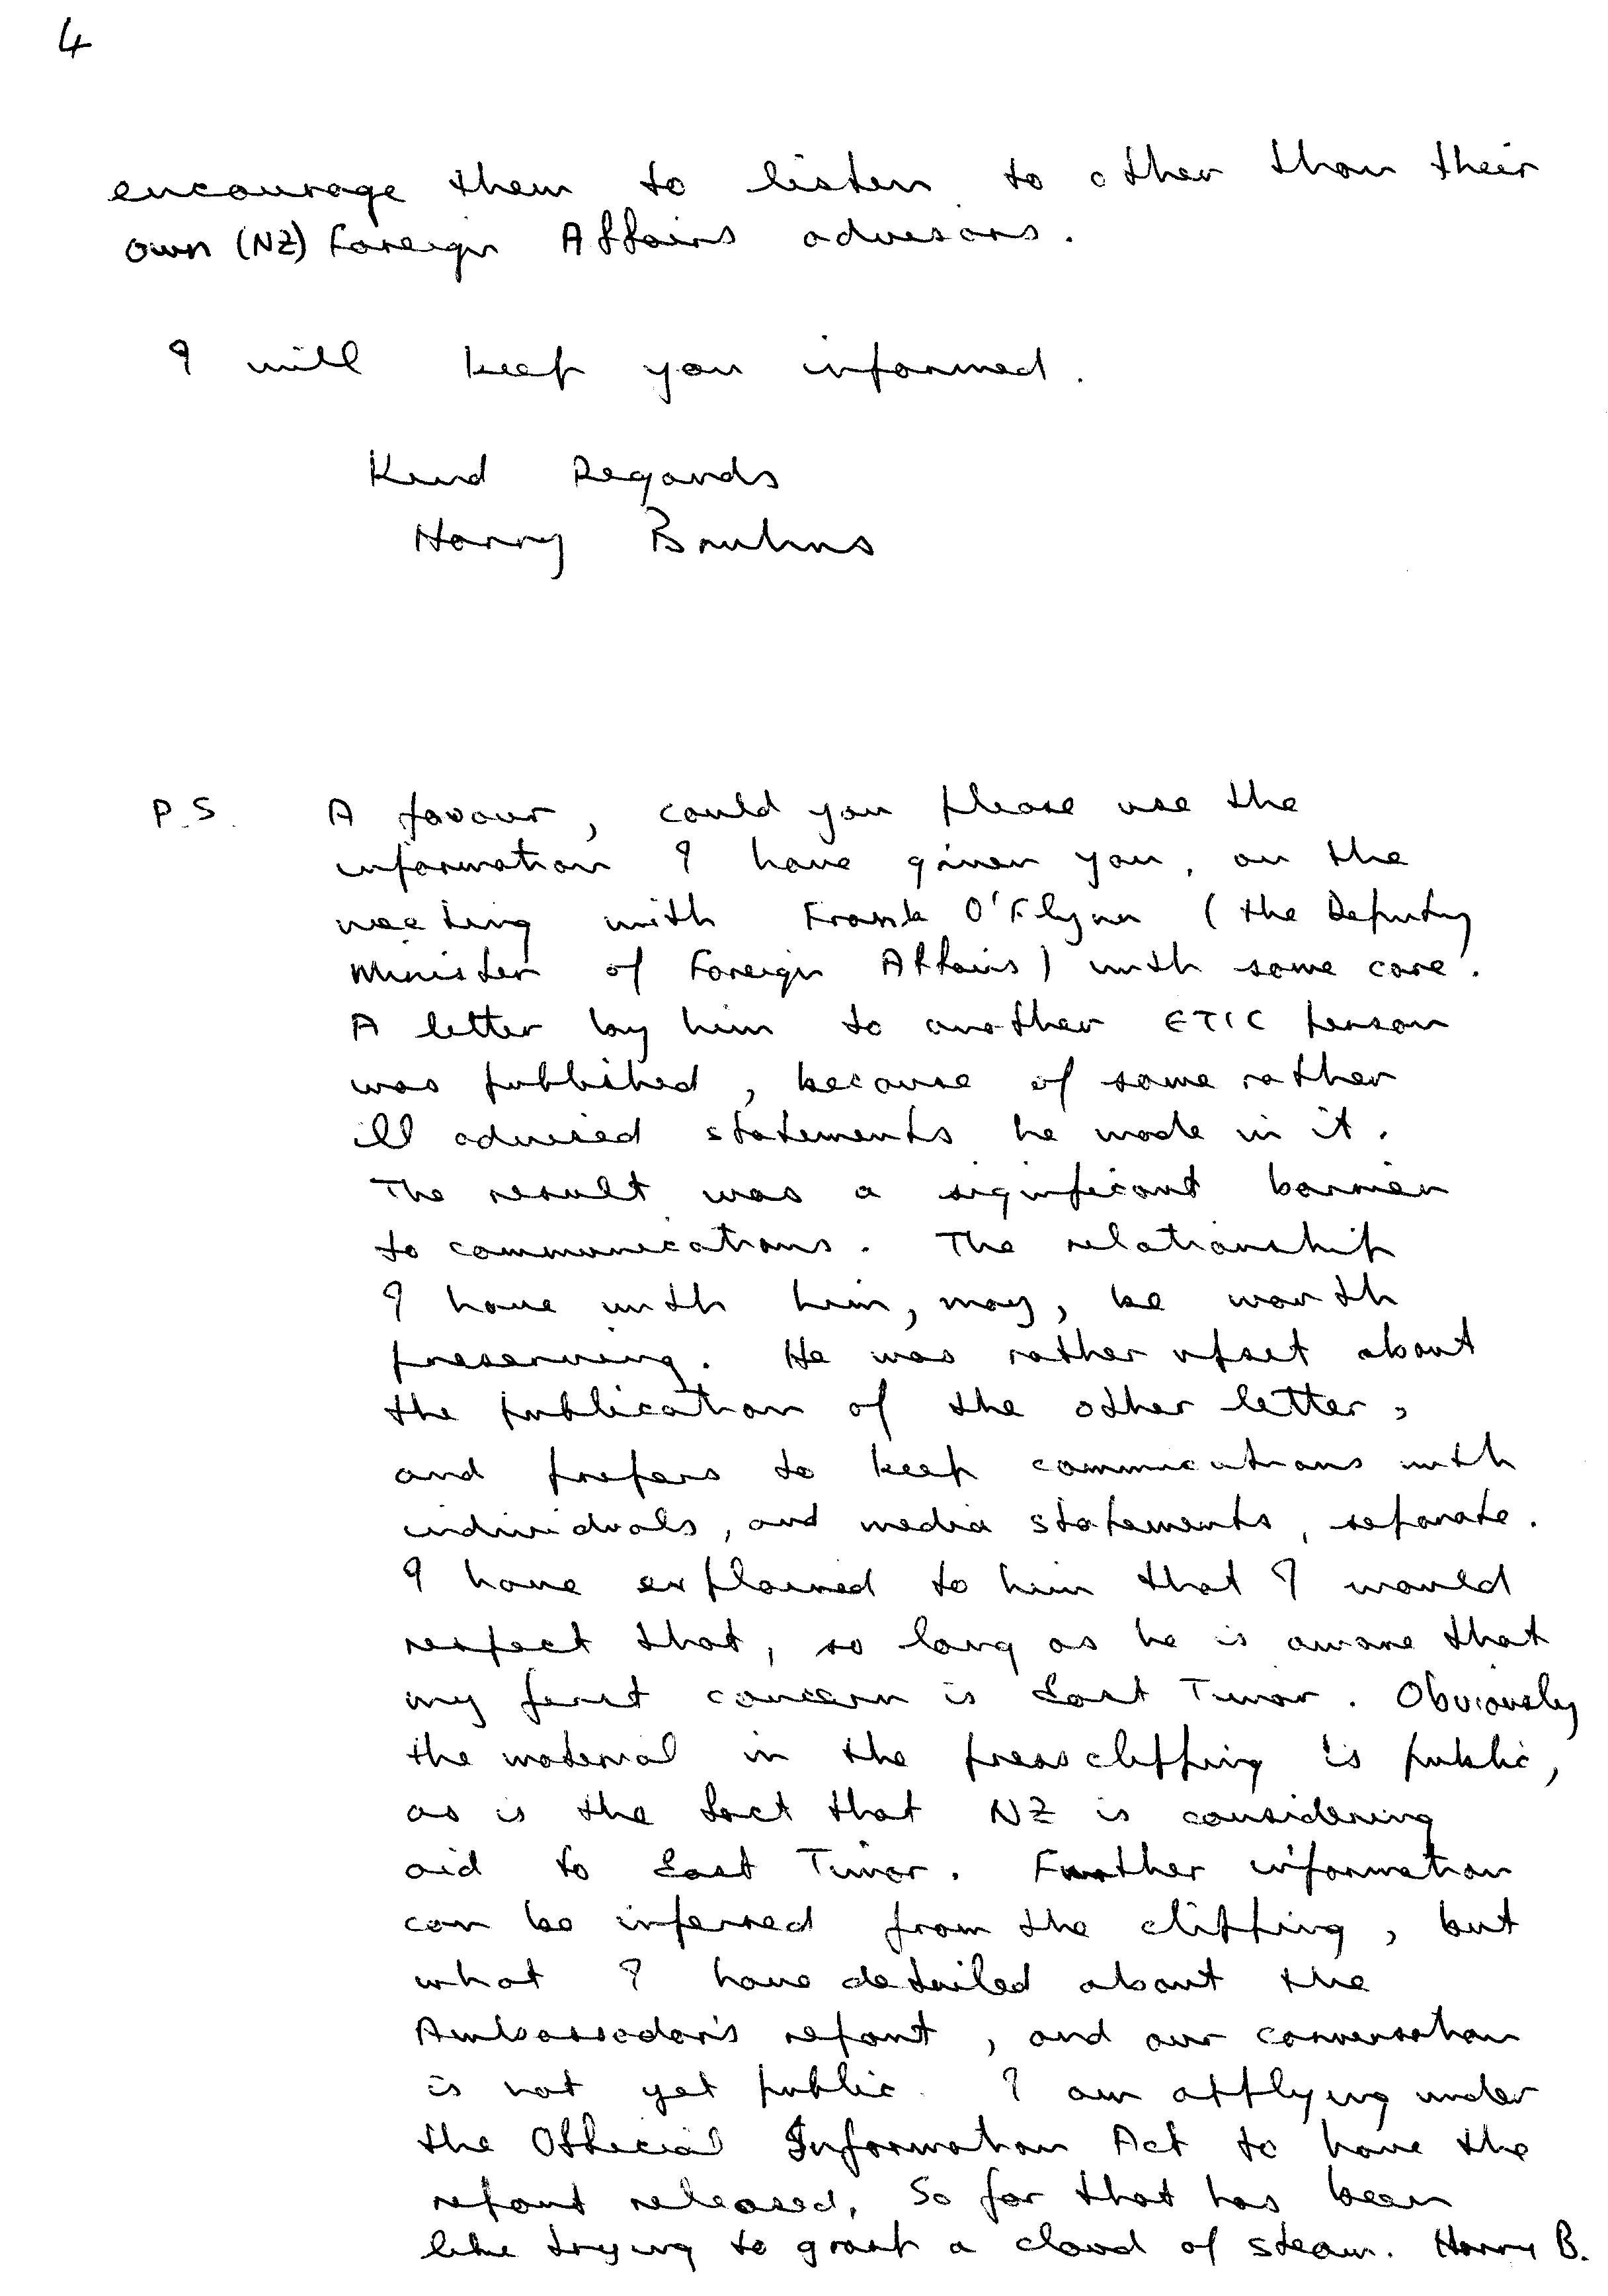 4
encourage them to listen to other than their
own (NZ) Foreign Affairs advisors.
I will keep you informed.
Kind Regards
Harry Bruhns
P.S. A favour, could you please use the
information I have given you, on the
meeting with Frank O'Flynn (the Deputy
Minister of Foreign Affairs) with some care.
A letter by him to another ETIC person
was published, because of some rather
ill advised statements he made in it.
The result was a significant barrier
to communications. The relationship
I have with him, may, be worth
preserving. He was rather upset about
the publication of the other letter,
and prefers to keep communications with
individuals, and media statements, separate.
I have explained to him that I would
respect that, so long as he is aware that
my first concern is East Timor. Obviously
the material in the press clipping is public,
as is the fact that NZ is considering
aid to East Timor. Further information
can be inferred from the clipping, but
what I have detailed about the
Ambassador's report, and our conversation
is not yet public. I am applying under
the Official Information Act to have the
report released. So far that has been
like trying to grasp a cloud of steam. Harry B.